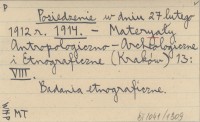 P
Posiedzenie w dniu 27 lutego
1912 r. 1914. - Materyały
Antropologiczno - Archeologiczne
i Etnograficzne (Kraków) 13:
VIII.
Badania etnograficzne.
WMP MT